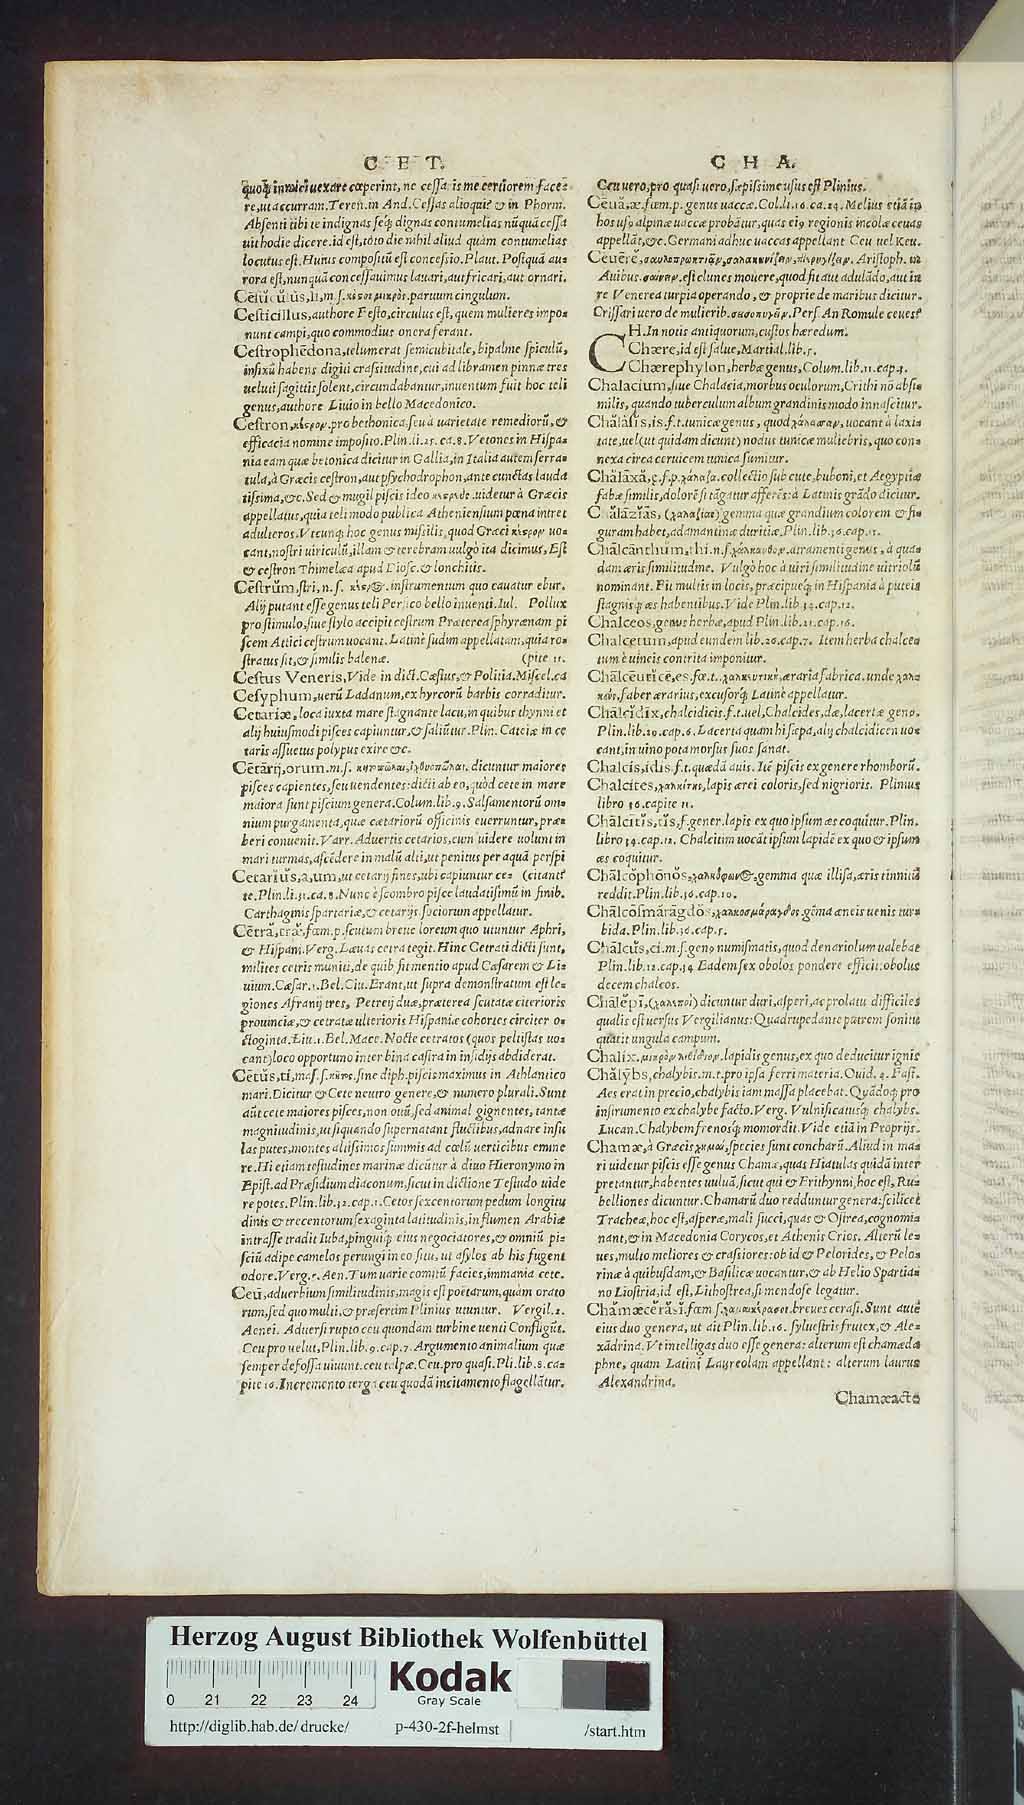 C E T.
quoq́; inuici uexare cœperint, ne cessa is me certiorem face-
re, ut accurram. Teren. in And. Cessas alioqui? & in Phorm.
Absenti tibi te indignas seq́; dignas contumelias nũquã cessa
uit hodie dicere. id est, toto die nihil aliud quàm contumelias
locutus est. Huius compositũ est concessio. Plaut. Postquã au-
rora est, nunquã concessauimus lauari, aut fricari, aut ornari.
Cestillus, li, m. s. paruum cingulum.
Cesticillus, authore Festo, circulus est, quem mulieres impo-
nunt campi, quo commodius onera ferant.
Cestrophẽdona, telum erat semicubitale, bipalme spiculũ,
infixũ habens digiti crassitudine, cui ad libramen pinnæ tres
ueluti sagittis solent, circundabantur, inuentum fuit hoc teli
genus, authore Liuio in bello Macedonico.
Cestron, κέςρον. pro bethonica seu à uarietate remediorũ, &
efficacia nomine imposito. Plin. li. 25. ca. 8. Vetones in Hispa-
nia eam quæ betonica dicitur in Gallia, in Italia autem serra-
tula, à Græcis cestron, aut psychodrophon, ante cunctas lauda
tissima, &c. Sed & mugil piscis ideo uidetur à Græcis
appellatus, quia teli modo publica Atheniensium pœna intret
adulteros. Vtcunq́; hoc genus missilis, quod Græci κέςρον uo-
cant, nostri uiriculũ, illam & terebram uulgò ita dicimus, Est
& cestron Thimelæa apud Diosc. & lonchitis.
Cestrũm, stri, n. s. instrumentum quo cauatur ebur.
Alij putant esse genus teli Persico bello inuenti. Iul. Pollux
pro stimulo, siue stylo accipit cestrum Præterea sphyrænam pi
scem Attici cestrum uocant. Latinè sudim appellatam, quia ro-
stratus sit, & similis balenæ. (pite 11.
Cestus Veneris, Vide in dict. Cæstus, & Politia. Miscel. ca
Cesyphum, uerũ Ladanum, ex hyrcorũ barbis corraditur.
Cetariæ, loca iuxta mare stagnante lacu, in quibus thynni et
alij huiusmodi pisces capiuntur, & saliũtur. Plin. Cateiæ in ce
taris assuetus polypus exire &c.
Cẽtãrij, orum. m. s. dicuntur maiores
pisces capientes, seu uendentes: dicti ab eo, quòd cete in mare
maiora sunt piscium genera. Colum. lib. 9. Salsamentorũ om-
nium purgamenta, quæ cætariorũ officinis euerruntur, præ-
beri conuenit. Varr. Aduertis cetarios, cum uidere uolunt in
mari turmas, ascẽdere in malũ alti, ut penitus per aquã perspi
Cetariũs, a, um, ut cetarij fines, ubi capiuntur ce- (citant?
te. Plin. li. 31. ca. 8. Nunc è scombro pisce laudatissimũ in finib.
Carthaginis spartariæ, & cetarijs sociorum appellatur.
Cẽtra, træ. fœm. p. scutum breue loreum quo utuntur Aphri,
& Hispani. Verg. Læuas cetra tegit. Hinc Cetrati dicti sunt,
milites cetris muniti, de quib. fit mentio apud Cæsarem & Li-
uium. Cæsar. 1. Bel. Ciu. Erant, ut supra demonstratum est le-
giones Afranij tres, Petreij duæ, præterea scutatæ citerioris
prouinciæ, & cetratæ ulterioris Hispaniæ cohortes circiter o-
ctoginta. Liu. 1. Bel. Mace. Nocte cetratos (quos peltistas uo-
cant) loco opportuno inter bina castra in insidijs abdiderat.
Cẽtũs, ti, mas. s. κῆτος. sine diph. piscis maximus in Athlantico
mari. Dicitur & Cete neutro genere, & numero plurali. Sunt
aũt cete maiores pisces, non ouũ, sed animal gignentes, tantæ
magnitudinis, ut si quando supernatant fluctibus, adnare insu
las putes, montes altissimos summis ad cœlũ uerticibus emine
re. Hi etiam testudines marinæ dicũtur à diuo Hieronymo in
Epist. ad Præsidium diaconum, sicut in dictione Testudo uide
re potes. Plin. lib. 32. cap. 1. Cetos sexcentorum pedum longitu
dinis & trecentorum sexaginta latitudinis, in flumen Arabiæ
intrasse tradit Iuba, pinguiq́; eius negociatores, & omniũ pi-
sciũ adipe camelos perungi in eo situ, ut asylos ab his fugent
odore. Verg. 5. Aen. Tum uariæ comitũ facies, immania cete.
Ceu, aduerbium similitudinis, magis est poëtarum, quàm orato
rum, sed quo multi, & præsertim Plinius utuntur. Vergil. 2.
Aenei. Aduersi rupto ceu quondam turbine uenti Confligũt.
Ceu pro uelut, Plin. lib. 9. cap. 7. Argumento animalium quæ
semper defossa uiuunt. ceu talpæ. Ceu. pro quasi. Pli. lib. 8. ca-
pite 16. Incremento terga ceu quodã incitamento flagellãtur.
C H A.
Ceu uero, pro quasi uero, sæpissime usus est Plinius.
Cẽuã, æ. fœm. p. genus uaccæ. Col. li. 16. ca. 24. Melius etiã in
hos usꝰ alpinæ uaccæ probãtur, quas eiꝰ regionis incolæ ceuas
appellãt, &c. Germani adhuc uaccas appellant Ceu uel Keu.
Ceuẽre, Aristoph. in
Auibus. est clunes mouere, quod fit aut adulãdo, aut in
re Venerea turpia operando, & proprie de maribus dicitur.
Crissari uero de mulierib. Pers. An Romule ceues?
CH. In notis antiquorum, custos hæredum.
Chære, id est salue, Martial. lib. 5.
Chærephylon, herbæ genus, Colum. lib. 11. cap. 4.
Chalacium, siue Chalacia, morbus oculorum, Crithi nõ absi-
milis, quando tuberculum album grandinis modo innascitur.
Chãlãsis, is. f. t. tunicæ genus, quod uocant à laxi-
tate, uel (ut quidam dicunt) nodus tunicæ muliebris, quo con-
nexa circa ceruicem tunica sumitur.
Chãlãxã, ę. f. p. χάλαζα. collectio sub cute, buboni, et Aegyptiæ
fabæ similis, dolorẽ si tãgatur afferẽs: à Latinis grãdo dicitur.
Chãlãzĩãs, (χαλαζίας) gemma quæ grandium colorem & fi-
guram habet, adamantinæ duritiæ, Plin. lib. 36. cap. 11.
Chãlcãnthum, thi. n. s. χάλκανθον. atramenti genus, à quo-
dam æris similitudine. Vulgò hoc à uitri similitudine uitriolũ
nominant. Fit multis in locis, præcipueq́; in Hispania à puteis
stagnisq́; æs habentibus. Vide Plin. lib. 34. cap. 12.
Chalceos, genus herbæ, apud Plin. lib. 21. cap. 16.
Chalcetum, apud eundem lib. 26. cap. 7. Item herba chalce-
tum è uineis contrita imponitur.
Chãlcẽuticẽ, es. fœ. t. χαλκευτική, æraria fabrica. unde
faber ærarius, excusorq́; Latinè appellatur.
Chãlcĩdĩx, chalcidicis. f. t. uel, Chalcides, dæ, lacertæ genꝰ.
Plin. lib. 29. cap. 6. Lacerta quam hi sæpa, alij chalcidicen uo-
cant, in uino pota morsus suos sanat.
Chalcis, idis. f. t. quædã auis. Itẽ piscis ex genere rhomborũ.
Chalcites, χαλκίτης, lapis ærei coloris, sed nigrioris. Plinius
libro 36. capite 11.
Chãlcĩtĩs, tĩs, f. gener. lapis ex quo ipsum æs coquitur. Plin.
libro 34. cap. 12. Chalcitim uocãt ipsum lapidẽ ex quo & ipsum
æs coquitur.
Chãlcõphõnõs, gemma quæ illisa, æris tinnitũ
reddit. Plin. lib. 36. cap. 10.
Chãlcõsmãrãgdõs, χαλκοσμάραγδος. gẽma æneis uenis tur-
bida. Plin. lib. 36. cap. 5.
Chãlcũs, ci. m. s. genꝰ numismatis, quod denariolum ualebat
Plin. lib. 12. cap. 14 Eadem sex obolos pondere efficit: obolus
decem chalcos.
Chãlẽpĩ, (χαλεποὶ) dicuntur duri, asperi, ac prolatu difficiles
qualis est uersus Vergilianus: Quadrupedante putrem sonitu
quatit ungula campum.
Chalix. lapidis genus, ex quo deducitur ignis
Chãlybs, chalybis. m. t. pro ipsa ferri materia. Ouid. 4. Fast.
Aes erat in precio, chalybis iam massa placebat. Quãdoq́; pro
instrumento ex chalybe facto. Verg. Vulnificatusq́; chalybs.
Lucan. Chalybem frenosq́; momordit. Vide etiã in Proprijs.
Chamæ, à Græcis χημαί, species sunt concharũ. Aliud in ma-
ri uidetur piscis esse genus Chama, quas Hiatulas quidã inter
pretantur, habentes uuluã, sicut qui & Erithynni, hoc est, Ru-
belliones dicuntur. Chamarũ duo reddunturgenera: scilicet
Tracheæ, hoc est, asperæ, mali succi, quas & Ostrea, cognomi-
nant, & in Macedonia Corycos, et Athenis Crios. Alterũ le-
ues, multo meliores & crassiores: ob id & Pelorides, & Pelo-
rinæ à quibusdam, & Basilicæ uocantur, & ab Helio Spartia-
no Liostria, id est, Lithostrea, si mendose legatur.
Chãmæcẽrãsĩ. fœm. s. breues cerasi. Sunt autẽ
eius duo genera, ut ait Plin. lib. 16. syluestris frutex, & Ale-
xãdrina. Vt intelligas duo esse genera: alterum est chamæda
phne, quam Latini Laureolam appellant: alterum laurus
Alexandrina.
Chamæacte
Herzog August Bibliothek Wolfenbüttel
Kodak
Gray Scale
0 21 22 23 24
http://diglib.hab.de/drucke/ p-430-2f-helmst /start.htm